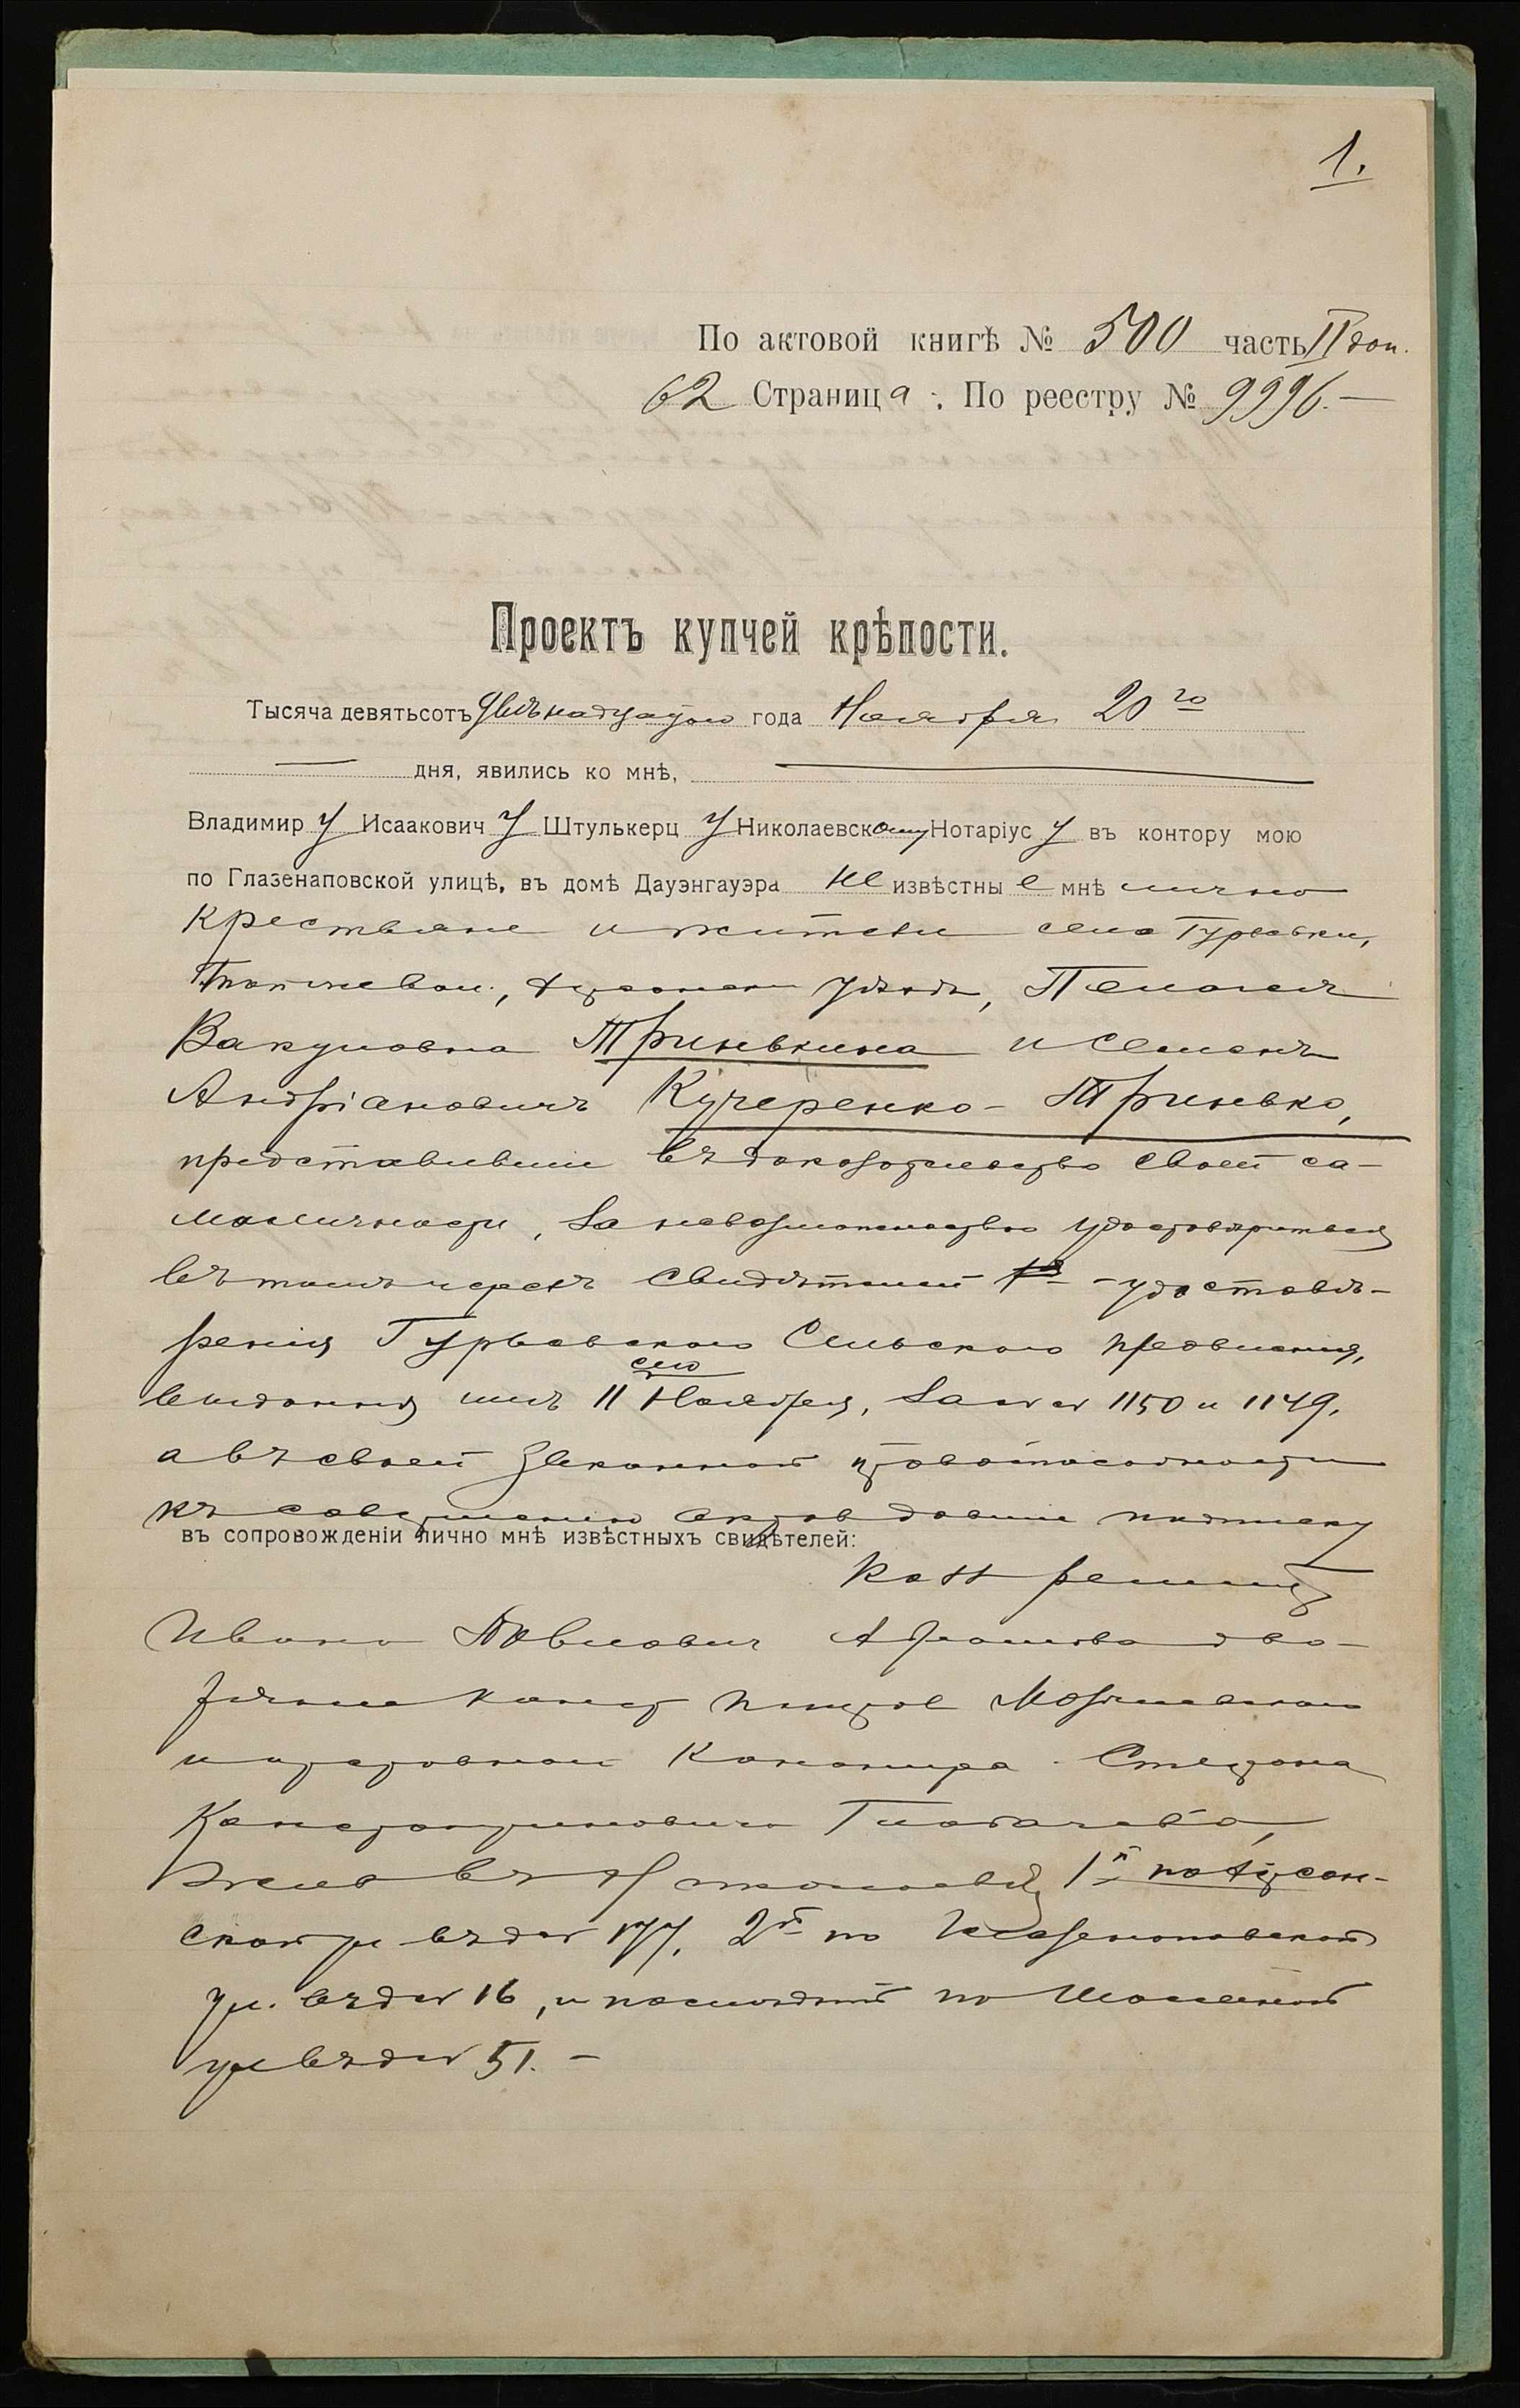 1.
По актовой книгѣ № 500 часть II доп.
62 Страница. По реестру № 9996.—
Проектъ купчей крѣпости.
Тысяча девятьсотъ двѣнадцатаго года Ноября 20го
дня, явились ко мнѣ,
Владимиру Исааковичу Штулькерцу Николаевскому Нотаріусу въ контору мою
по Глазенаповской улицѣ, въ домѣ Дауэнгауэра неизвѣстные мнѣ лично
крестьяне и жители села Гурьевки,
уѣзда, Пелагея
Вакуловна Тринькина и Семенъ
Андріановичъ Кучеренко-Тринько,
представившіе въ доказательство своей са-
моличности, за невозможностью удостовѣриться
въ томъ черезъ свидѣтелей удостовѣ-
ренія Гурьевскаго Сельскаго Правленія,
выданныя имъ 11 сего Ноября, за №№ 1150 и 1149,
а въ своей законной правоспособности
къ совершенію актовъ давшіе подписку
въ сопровожденіи лично мнѣ извѣстныхъ свидѣтелей:
Ивана Павловича
Стефана
Константиновича
1й по Херсон-
ской ул въ д № 177, 2й по Глазенаповской
ул. въ д № 16, и послѣдній по
ул въ д № 51.—